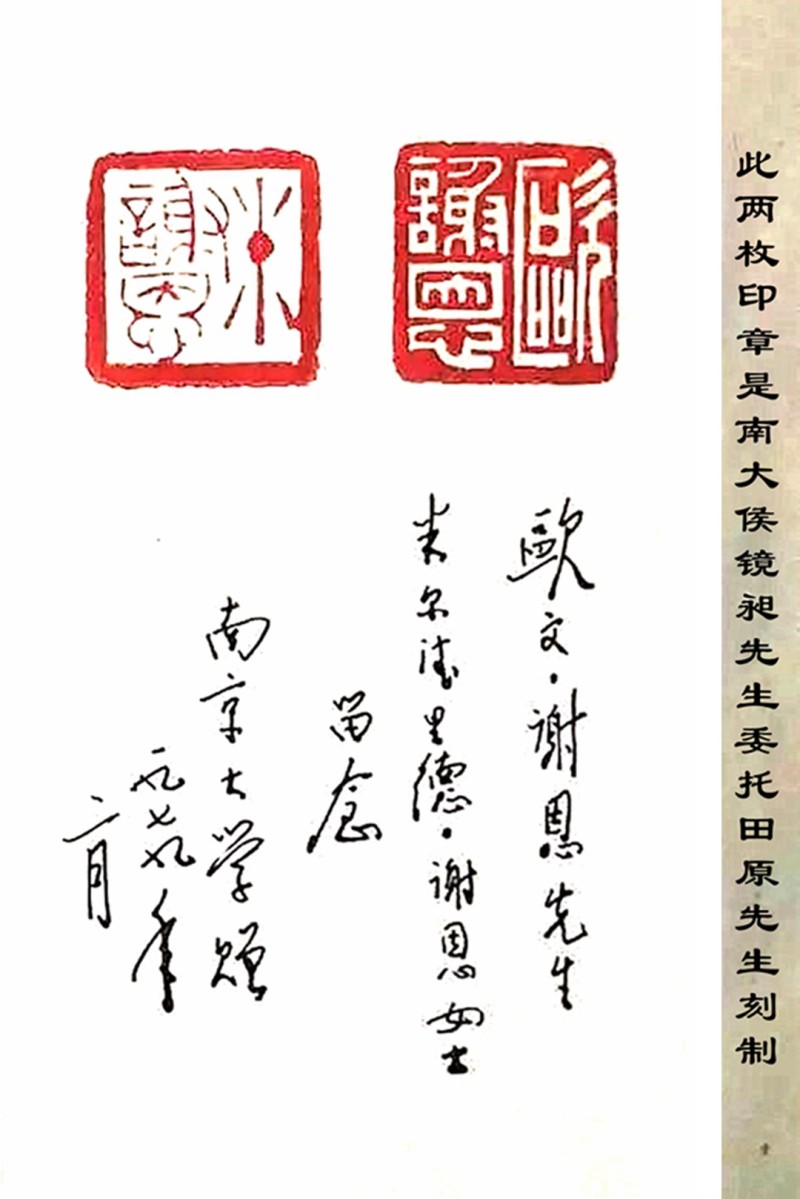 此两枚印章是南大侯镜昶先生委托田原先生刻制
歐謝恩
米謝恩
歐文·谢恩先生
米尔德里德·谢恩女士
留念
南京大学赠
一九七九年
二月